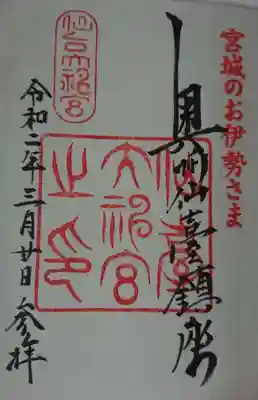 宮城のお伊勢さま
奥州仙臺鎮座
仙台大神宮
仙台
大神宮
之印
令和二年三月廿日参拝